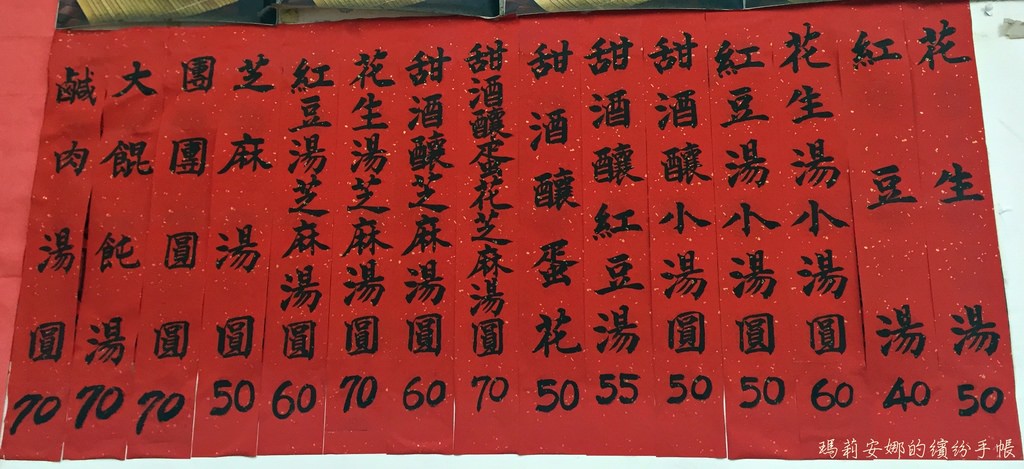 花生湯 50
紅豆湯 40
花生湯小湯圓 60
紅豆湯小湯圓 50
甜酒釀小湯圓 50
甜酒釀紅豆湯 55
甜酒釀蛋花 50
甜酒釀蛋花芝麻湯圓 70
甜酒釀芝麻湯圓 60
花生湯芝麻湯圓 70
紅豆湯芝麻湯圓 60
芝麻湯圓 50
團團圓圓 70
大餛飩湯 70
鹹肉湯圓 70
瑪莉安娜的繽紛手帳